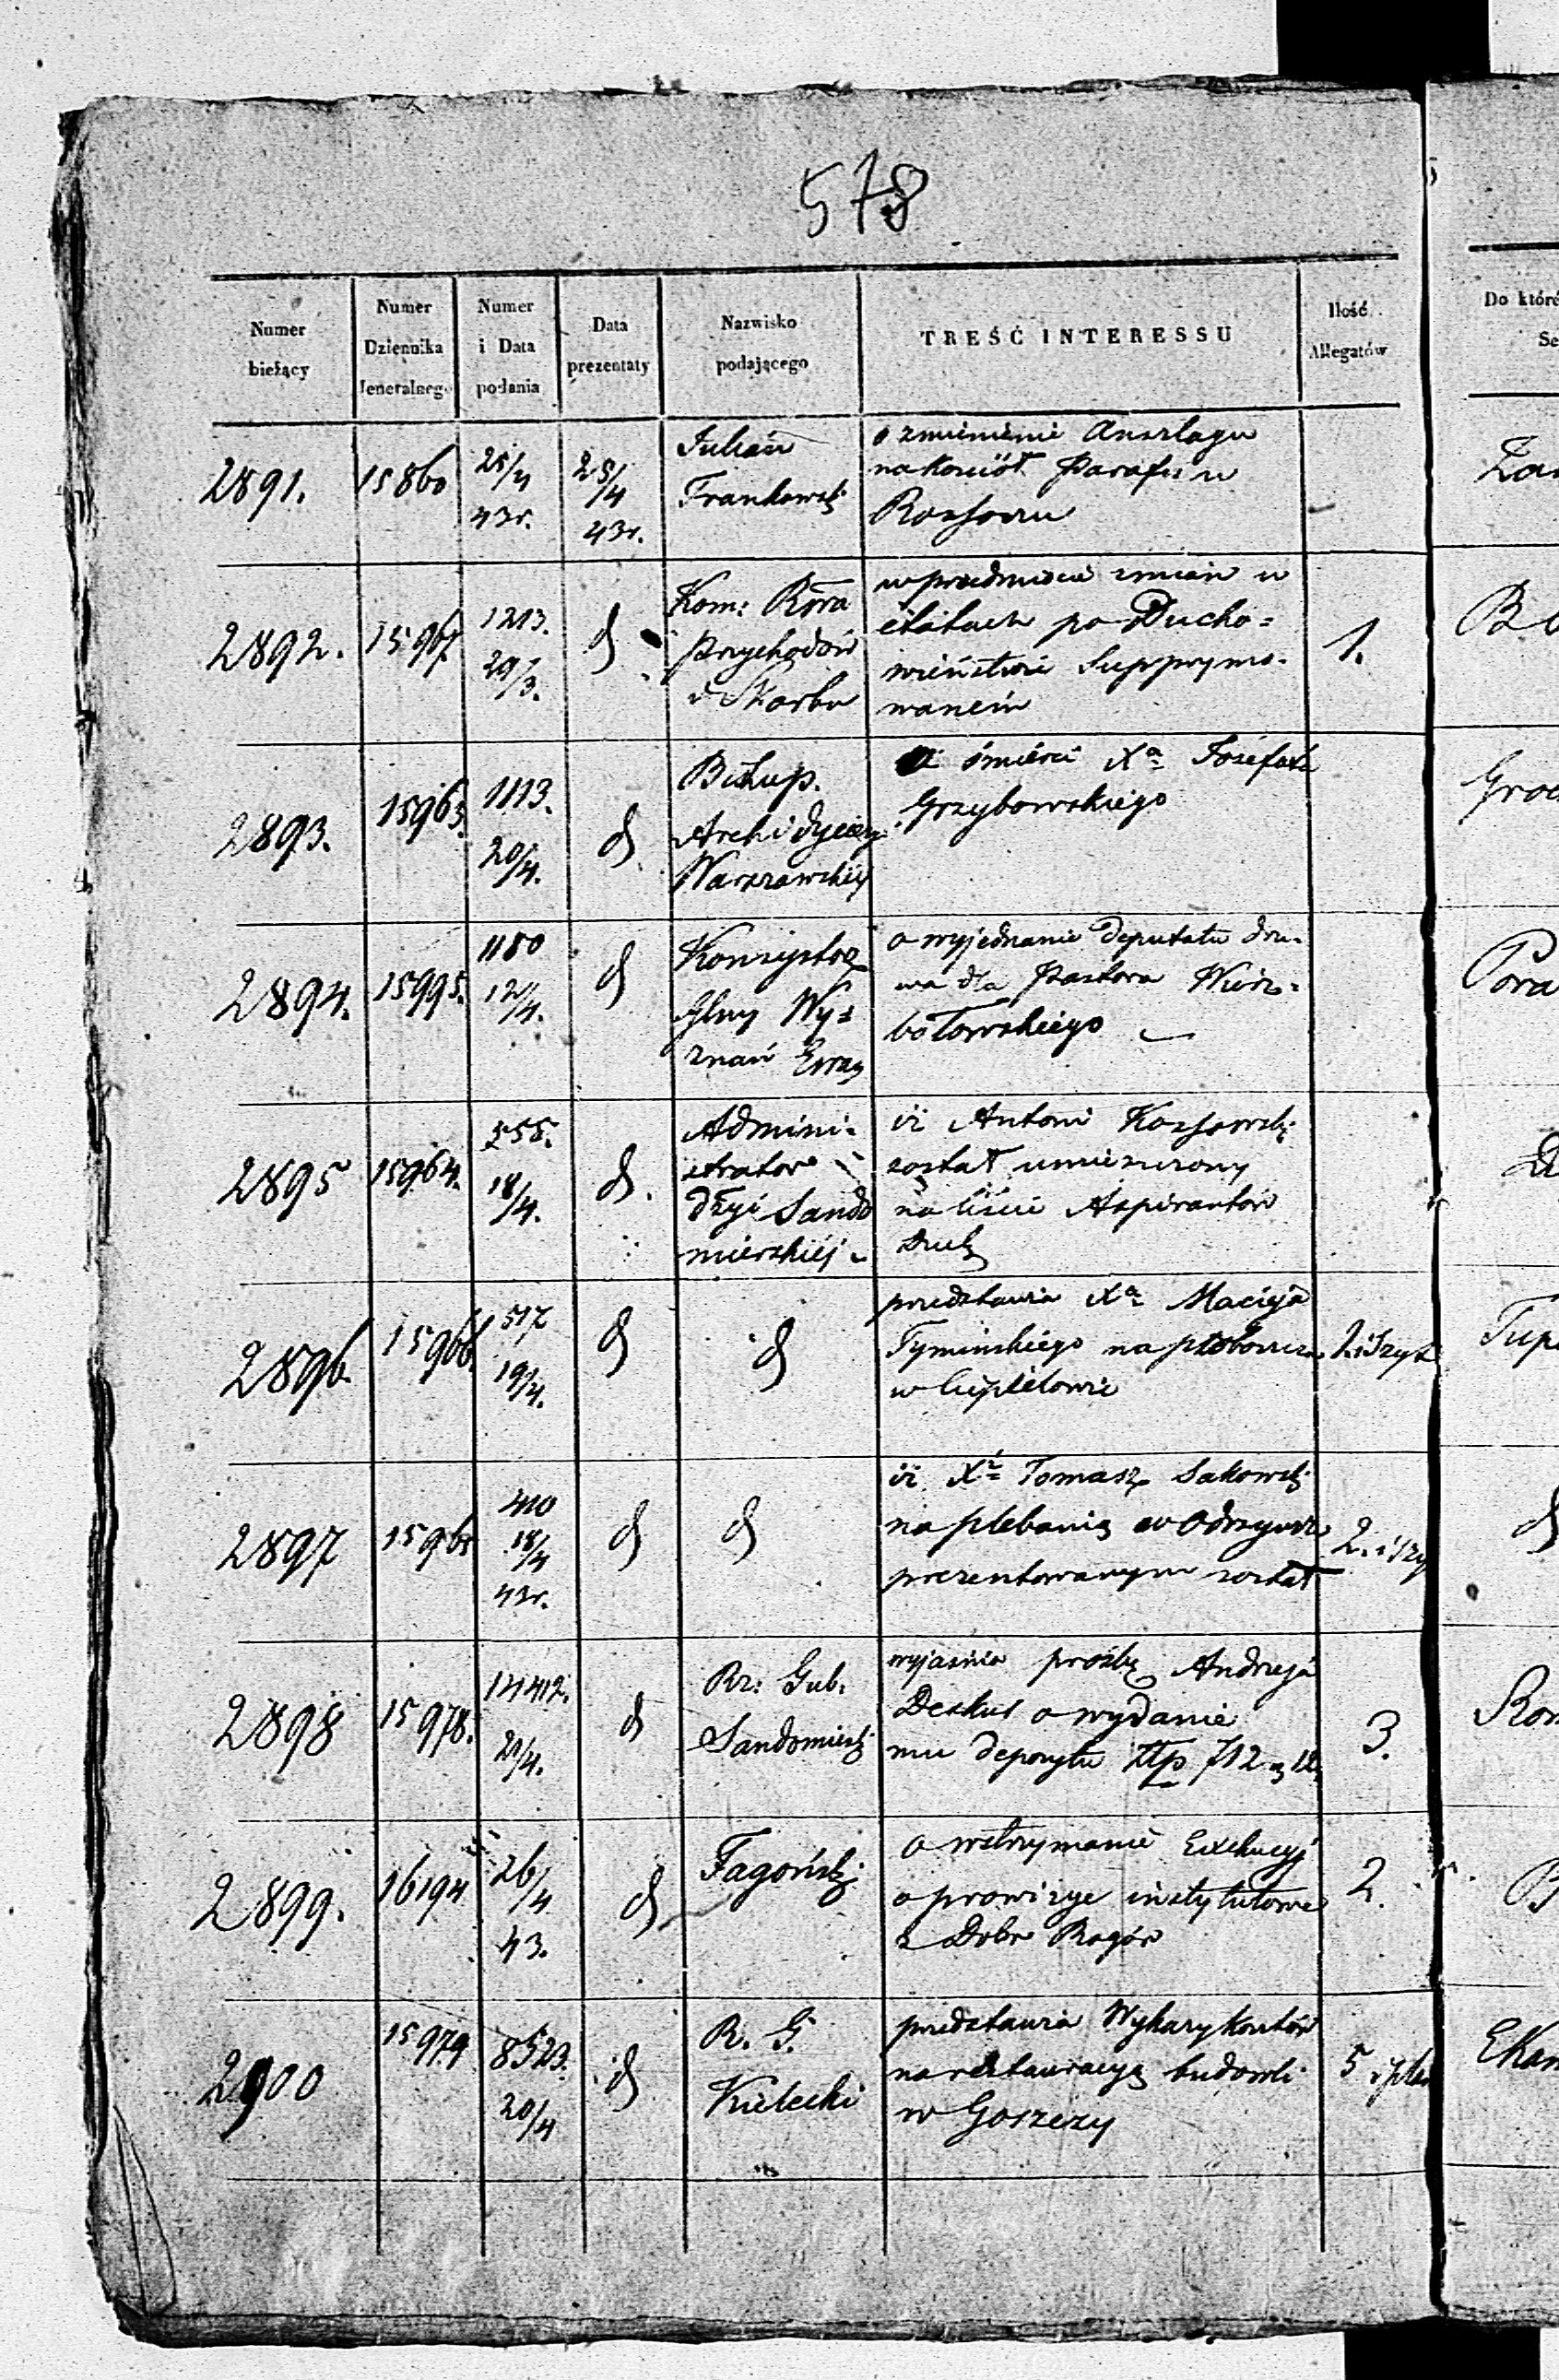 578
Numer bieżący | Numer Dziennika Jeneralnego | Numer i Data podania | Data prezentaty | Nazwisko podającego | TREŚĆ INTERESSU | Ilość Allegatów | Do któré Se
2891. | 15860 | 25/4 43r. | 25/4 43r. | Julian Frankowski | o zmienienie Anszlagu
na kościół Parafii w
Rossoszu
2892. | 15967. | 1213. 29/3. | d | Kom: Rząda Przychodów i Skarbu | w przedmiocie zmian w | 1.
etatach po Ducho=
wieństwie Supprymo-
wanem
2893. | 15963. | 1113. 20/4. | d | Biskup. Archidyecezyi Warszawskiéj | o śmierci Xa Józefata
Grzybowskiego
2894. | 15995. | 1180 12/4. | d | Konsystorz Jlny Wy= znań Ewang | o wyjednanie deputatu drze-
wa dla Pastora Wierz-
bołowskiego
2895 | 15964. | 555. 18/4. | d. | Admini= strator dyyi Sando mierskiéj | iż Antoni Kossowski
został umieszczony
na liście Aspirantów
Duch
2896. | 15966. | 517 19/4. | d | d | przedstawia Xa Macieja | 2. i szyt | Tup
Tymińskiego na proboszcza
w Ciepielowie
2897 | 15965 | 410 18/4 43r. | d | d | iż X. Tomasz Sakowski | 2. i szy | d
na plebanią w Odrzywole
prezentowanym został
2898 | 15978. | 14412. 21/4. | d | Rz: Gub. Sandomierski | wyjaśnia prośbę Andrzeja | 3.
Deskur o wydanie
mu depozytu Złp 712 g 12
2899. | 16194 | 26/4 43. | d | Fagoński | o wstrzymanie Exekucyj | 2. | B
o prowizye instytutowe
z Dobr Rogów
2900 | 15979 | 8523. 20/4 | d | R. G. Kielecki | przedstawia Wykazy kosztów | 5 i plan
na restauracyą budowli
w Goszczy